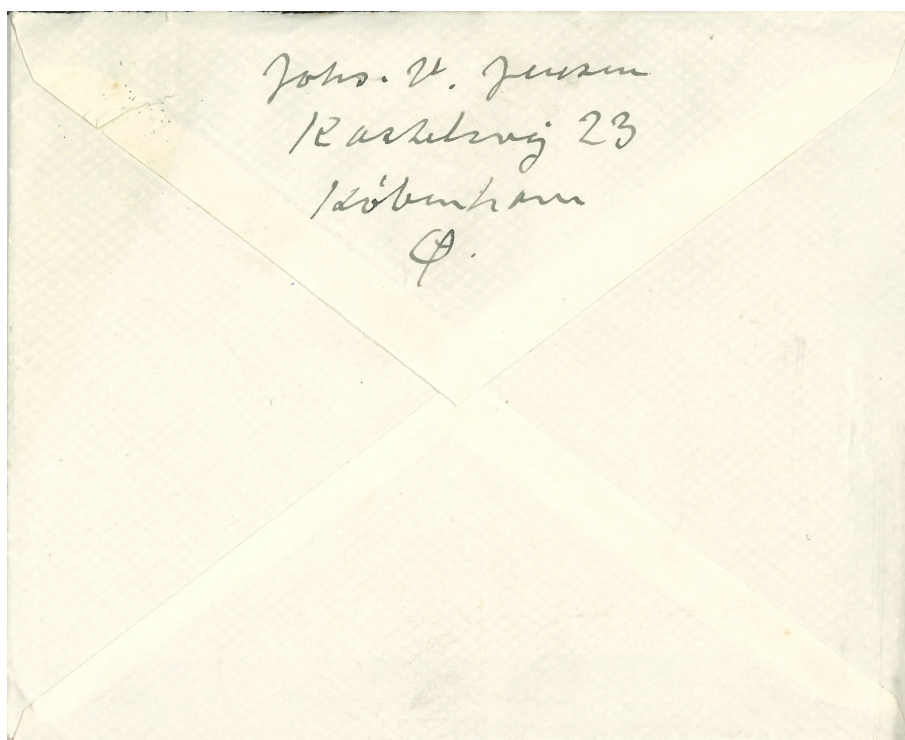 Johs. V. Jensen
Kastelsvej 23
København
Ø.